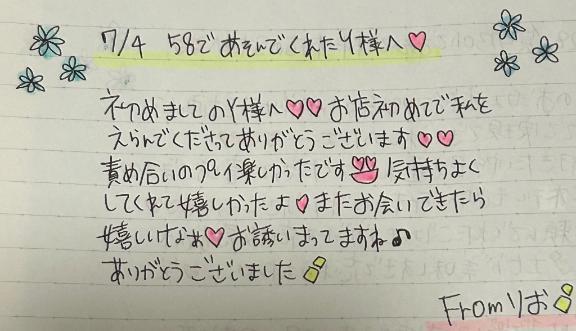 7/4 58であそんでくれたY様へ♡
初めましてのY様へ♡♡お店初めてで私を
えらんでくださってありがとうございます♡♡
責め合いのプレイ楽しかったです 気持ちよく
してくれて嬉しかったよ♡またお会いできたら
嬉しいなぁ♡お誘いまってますね♪
ありがとうございました
Fromりお